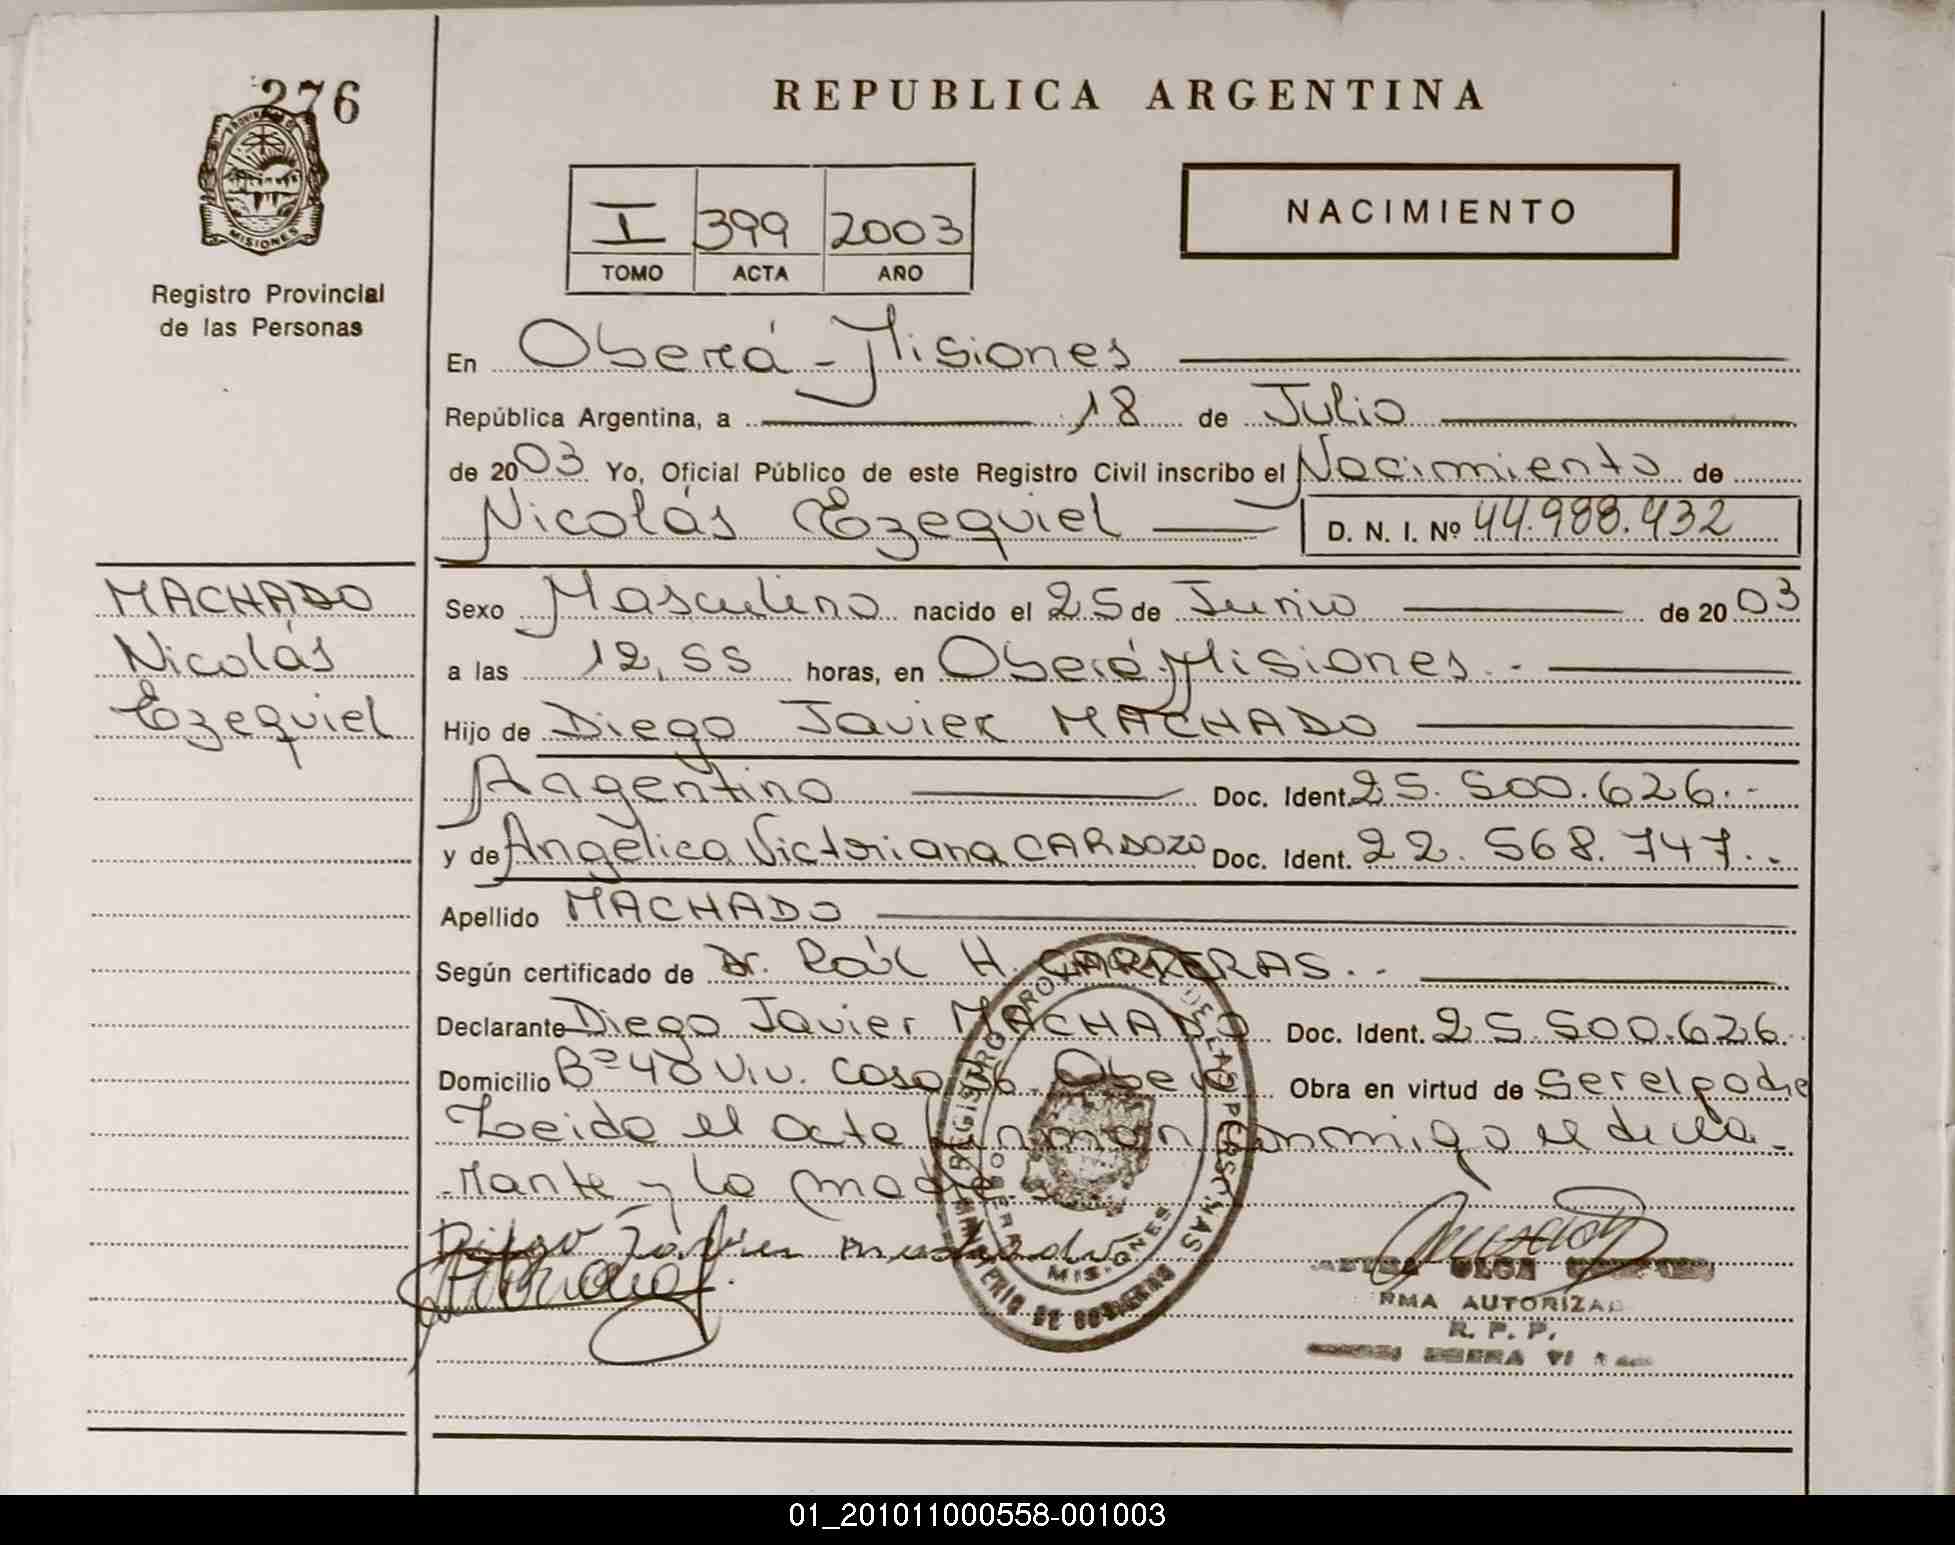 276
PROVINCIA DE
MISIONES
Registro Provincial
de las Personas
REPUBLICA ARGENTINA
I 399 2003
TOMO ACTA AÑO
NACIMIENTO
En Oberá - Misiones
República Argentina, a 18 de Julio
de 2003 Yo, Oficial Público de este Registro Civil inscribo el Nacimiento de
Nicolás Ezequiel D. N. I. Nº 44.988.432
MACHADO
Nicolás
Ezequiel
Sexo Masculino nacido el 25 de Junio de 2003
a las 12,55 horas, en Oberá Misiones.-
Hijo de Diego Javier MACHADO
Argentino Doc. Ident. 25.500.626.-
y de Angélica Victoriana CARDOZO Doc. Ident. 22.568.747.-
Apellido MACHADO
Según certificado de Dr. Raúl H. CARRERAS.-
Declarante Diego Javier MACHADO Doc. Ident. 25.500.626.
Domicilio Bº 48 Viv. Casa Oberá Obra en virtud de ser el padre
Leida el acta firman conmigo el decla-
rante y la madre
Diego Javier Machado
REGISTRO PROV. DE LAS PERSONAS
MINISTERIO DE GOBIERNO
OBERA MISIONES
OLGA
RMA AUTORIZAD
R. P. P.
OBERA
01_201011000558-001003